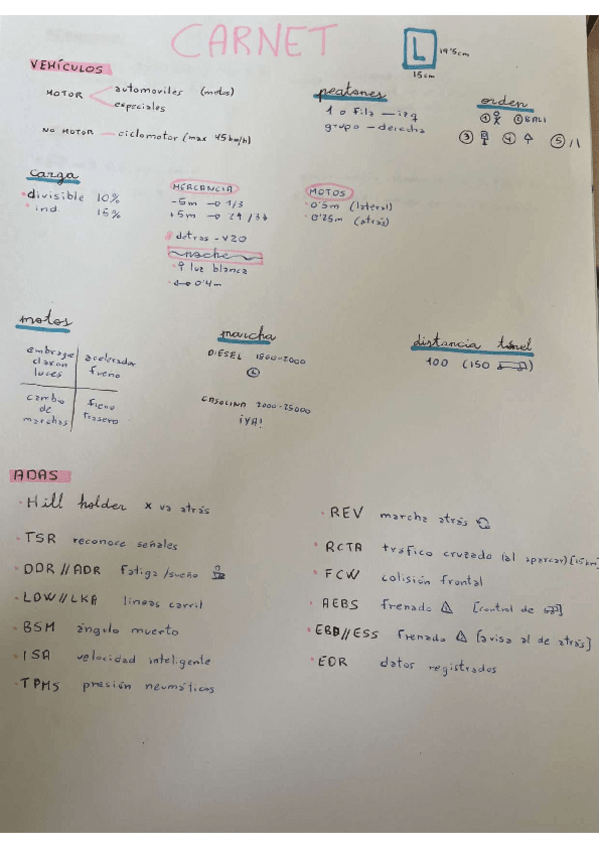 CARNET
L
19'5cm
15cm
VEHÍCULOS
MOTOR
automoviles (motos)
especiales
NO MOTOR — ciclomotor (max 45km/h)
peatones
1 o fila — izq
grupo — derecha
orden
① ② BALI
③ ④ ⑤
carga
divisible 10%
ind. 15%
MERCANCIA
-5m → 1/3
+5m → 2
detras - V20
noche
luz blanca
0'4m
MOTOS
0'5m (lateral)
0'25m (atrás)
motos
embrague
claxon
luces
acelerador
freno
cambio
de
marchas
freno
trasero
marcha
DIÉSEL 1800-2000
GASOLINA 2000-25000
¡YA!
distancia túnel
100 (150 )
ADAS
· Hill holder x va atrás
· TSR reconoce señales
· DDR // ADR fatiga / sueño
· LOW // LKA lineas carril
· BSM ángulo muerto
· ISA velocidad inteligente
· TPMS presión neumáticos
· REV marcha atrás
· RCTA tráfico cruzado (al aparcar) [15km]
· FCW colisión frontal
· AEBS frenado ⚠ [control de ]
· EBD // ESS frenado ⚠ [avisa al de atrás]
· EDR datos registrados